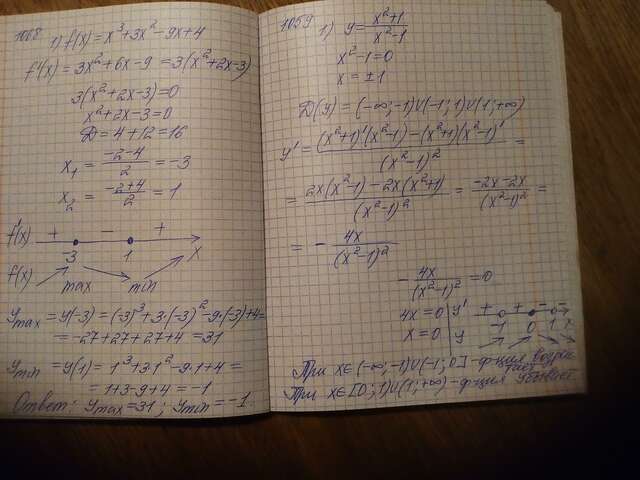 1008 1) f(x) = x³+3x²-9x+4
f'(x) = 3x²+6x-9 = 3(x²+2x-3)
3(x²+2x-3)=0
x²+2x-3=0
D = 4+12=16
x₁ = (-2-4)/2 = -3
x₂ = (-2+4)/2 = 1
f'(x) + - +
-3 1 x
f(x) max min
ymax = y(-3) = (-3)³+3·(-3)²-9·(-3)+4=
= -27+27+27+4=31
ymin = y(1) = 1³+3·1²-9·1+4 =
= 1+3-9+4 = -1
Ответ: ymax=31; ymin=-1
1059 1) y = (x²+1)/(x²-1)
x²-1=0
x = ±1
D(y) = (-∞;-1)∪(-1;1)∪(1;+∞)
y' = ((x²+1)'(x²-1)-(x²+1)(x²-1)')/(x²-1)² =
= (2x(x²-1)-2x(x²+1))/(x²-1)² = (-2x-2x)/(x²-1)² =
= - 4x/(x²-1)²
- 4x/(x²-1)² =0
4x=0 y' + + - -
x=0 y -1 0 1 x
При x∈(-∞;-1)∪(-1;0] - ф-ция возрастает
При x∈[0;1)∪(1;+∞) - ф-ция убывает